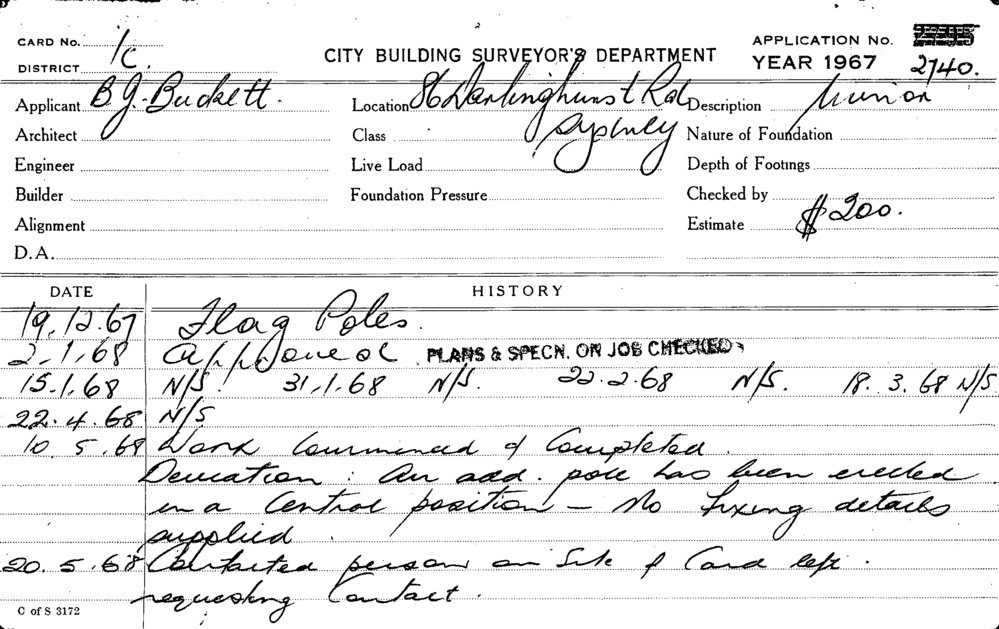 CARD No.
DISTRICT 1C.
CITY BUILDING SURVEYOR'S DEPARTMENT
APPLICATION No.
YEAR 1967 2740.
Applicant B.J. Buckett. Location 86 Darlinghurst Rd Description Minor
Architect Class Sydney Nature of Foundation
Engineer Live Load Depth of Footings
Builder Foundation Pressure Checked by
Alignment Estimate $200.
D.A.
DATE HISTORY
19.12.67 Flag Poles.
2.1.68 Approved PLANS & SPECN. ON JOB CHECKED
15.1.68 N/S. 31.1.68 N/S. 22.2.68 N/S. 18.3.68 N/S
22.4.68 N/S
10.5.68 Work Commenced & Completed.
Deviation: An add. pole has been erected
in a Central position – No fixing details
supplied.
20.5.68 Contacted person on Site & Card left.
requesting Contact.
C of S 3172